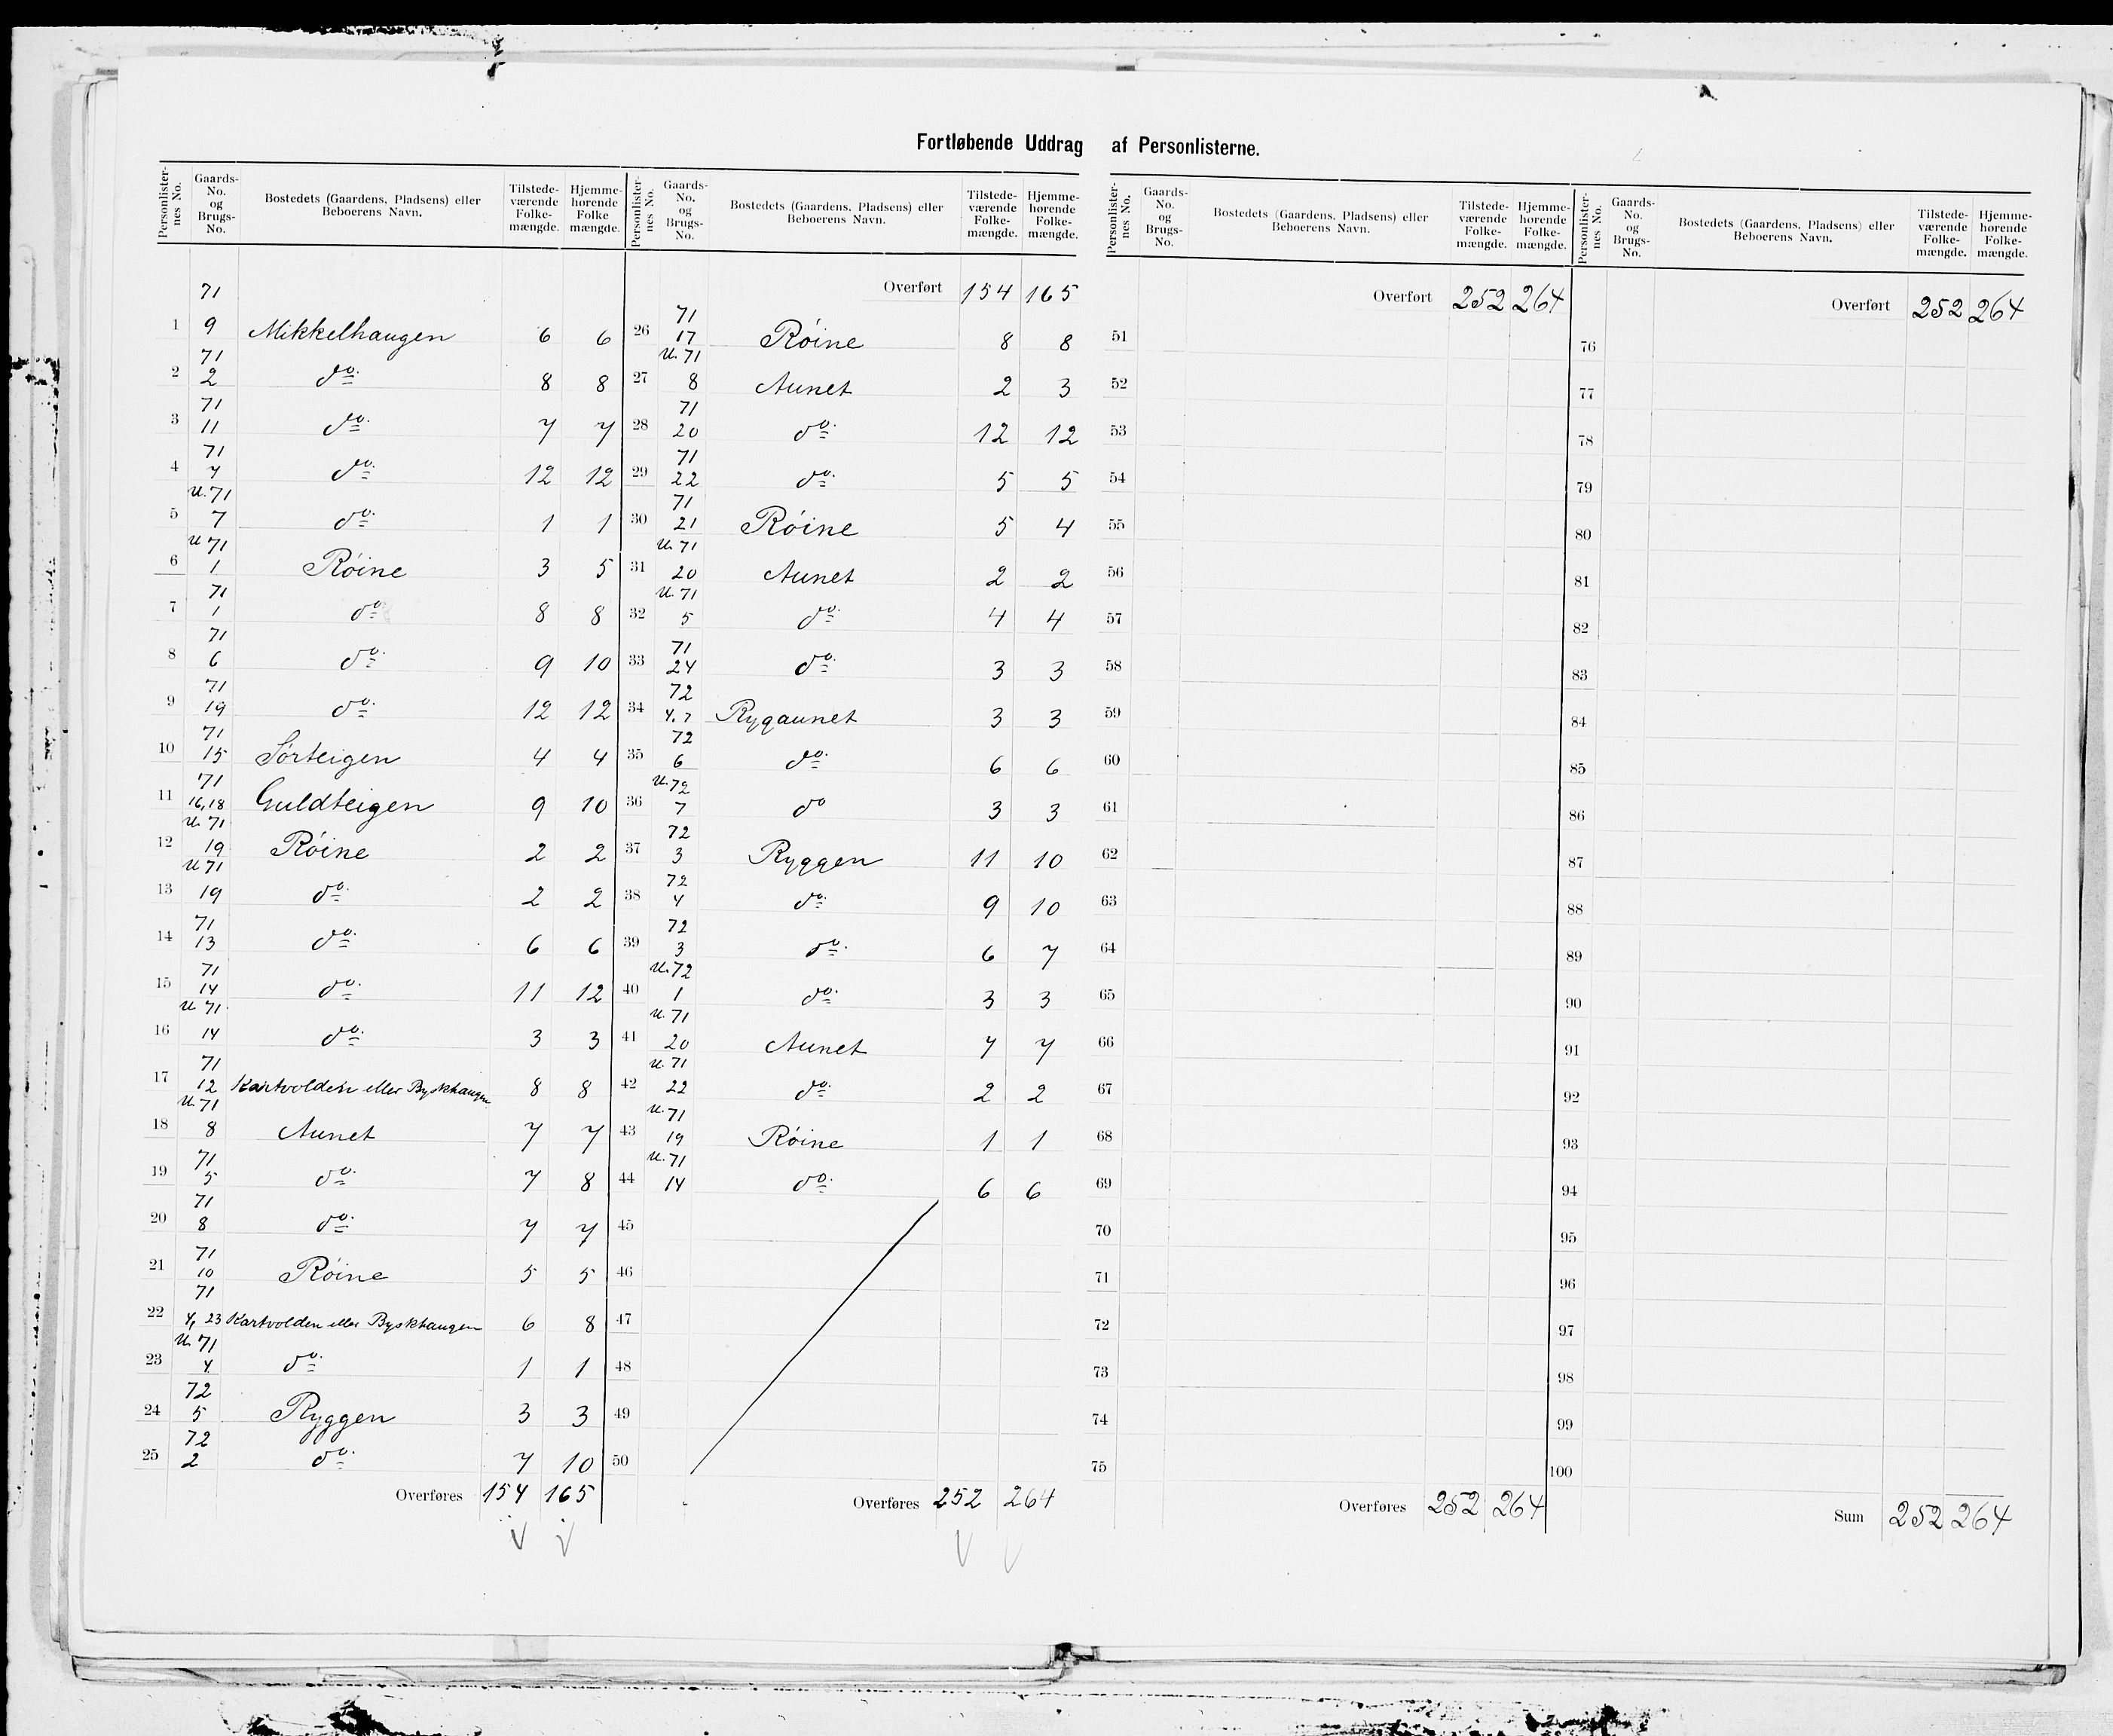 Fortløbende Uddrag af Personlisterne.
Personlister-nes No. Gaards-No. og Brugs-No. Bostedets (Gaardens, Pladsens) eller Beboerens Navn. Tilstede-værende Folke-mængde. Hjemme-hørende Folke mængde.
1 71 9 Mikkelhaugen 6 6
2 71 2 do. 8 8
3 71 11 do. 7 7
4 71 7 do. 12 12
5 U. 71 7 do. 1 1
6 U 71 1 Röine 3 5
7 71 1 do 8 8
8 71 6 do. 9 10
9 71 19 do. 12 12
10 71 15 Sörteigen 4 4
11 71 16,18 Guldteigen 9 10
12 U. 71 19 Röine 2 2
13 U 71 19 do. 2 2
14 71 13 do. 6 6
15 71 14 do. 11 12
16 U 71 14 do. 3 3
17 71 12 Kartvolden eller Byskhaugen 8 8
18 U. 71 8 Aunet 7 7
19 71 5 do. 7 8
20 71 8 do. 7 7
21 71 10 Röine 5 5
22 71 4, 23 Kartvolden eller Byskhaugen 6 8
23 U. 71 4 do. 1 1
24 72 5 Ryggen 3 3
25 72 2 do. 7 10
Overføres 154 165
Personlister-nes No. Gaards-No. og Brugs-No. Bostedets (Gaardens, Pladsens) eller Beboerens Navn. Tilstede-værende Folke-mængde. Hjemme-hørende Folke-mængde.
Overført 154 165
26 71 17 Röine 8 8
27 U. 71 8 Aunet 2 3
28 71 20 do. 12 12
29 71 22 do. 5 5
30 71 21 Röine 5 4
31 U. 71 20 Aunet 2 2
32 U. 71 5 do. 4 4
33 71 24 do. 3 3
34 72 4.7 Rygaunet 3 3
35 72 6 do. 6 6
36 U. 72 7 do 3 3
37 72 3 Ryggen 11 10
38 72 4 do. 9 10
39 72 3 do. 6 7
40 U. 72 1 do. 3 3
41 U. 71 20 Aunet 7 7
42 U. 71 22 do. 2 2
43 U. 71 19 Röine 1 1
44 U. 71 14 do. 6 6
45
46
47
48
49
50
Overføres 252 264
Personlister-nes No. Gaards-No. og Brugs-No. Bostedets (Gaardens, Pladsens) eller Beboerens Navn. Tilstede-værende Folke-mængde. Hjemme-hørende Folke-mængde.
Overført 252 264
51
52
53
54
55
56
57
58
59
60
61
62
63
64
65
66
67
68
69
70
71
72
73
74
75
Overføres 252 264
Personlister-nes No. Gaards-No. og Brugs-No. Bostedets (Gaardens, Pladsens) eller Beboerens Navn. Tilstede-værende Folke-mængde. Hjemme-hørende Folke-mængde.
Overført 252 264
76
77
78
79
80
81
82
83
84
85
86
87
88
89
90
91
92
93
94
95
96
97
98
99
100
Sum 252 264